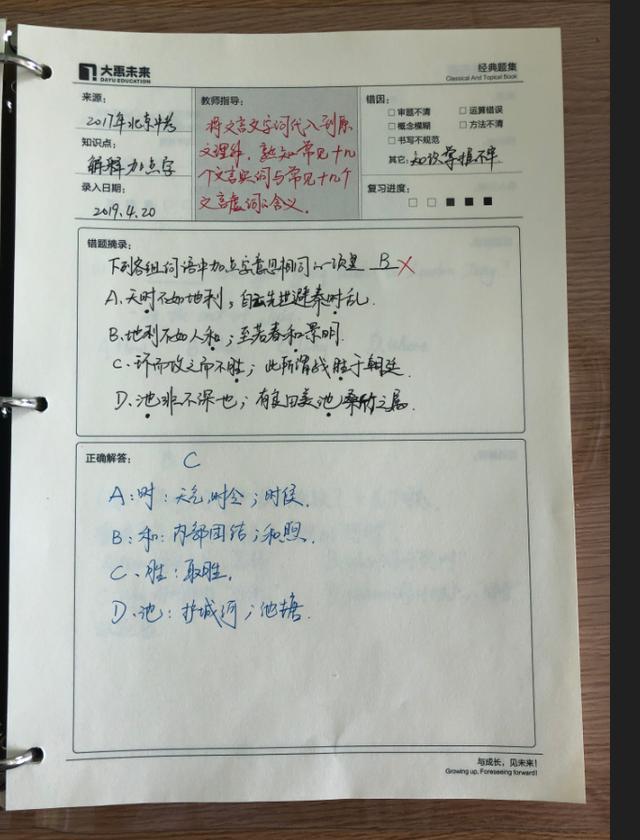 大禹未来
DAYU EDUCATION
经典题集
Classical And Topical Book
来源：
2017年北京中考
知识点：
解释加点字
录入日期：
2019.4.20
教师指导：
将文言文字词代入到原
文理解，熟知常见十几
个文言实词与常见十几个
文言虚词的含义．
错因：
□ 审题不清 □ 运算错误
□ 概念模糊 □ 方法不清
□ 书写不规范
其它：知识掌握不牢
复习进度：
□ □ ■ ■ ■
错题摘录：
下列各组词语中加点字意思相同的一项是 B ×
A、天时不如地利；自云先世避秦时乱．
B、地利不如人和；至若春和景明．
C、环而攻之而不胜；此所谓战胜于朝廷．
D、池非不深也；有良田美池桑竹之属．
正确解答：
C
A：时：天气，时令；时候．
B：和：内部团结；和煦．
C、胜：取胜．
D、池：护城河；池塘．
与成长，见未来！
Growing up, Foreseeing forward!